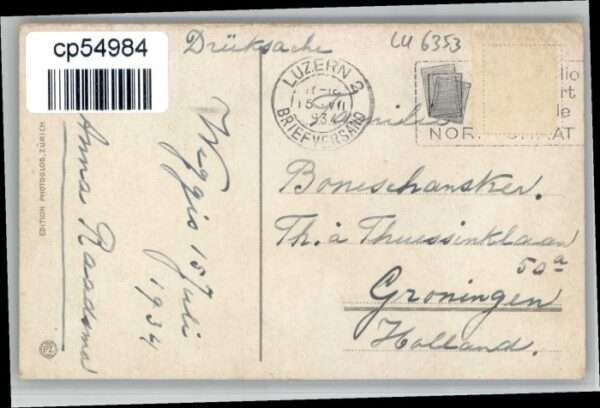 cp54984
Drüksache
LU 6353
LUZERN 2
15.VII
934
BRIEFVERSAND
NOR
AT
Familie
Boneschansker.
Th. à Thuessinklaan
50a
Groningen
Holland.
Weggis 15 Juli
1934
Anna Raadsma
EDITION PHOTOGLOB, ZÜRICH
PZ